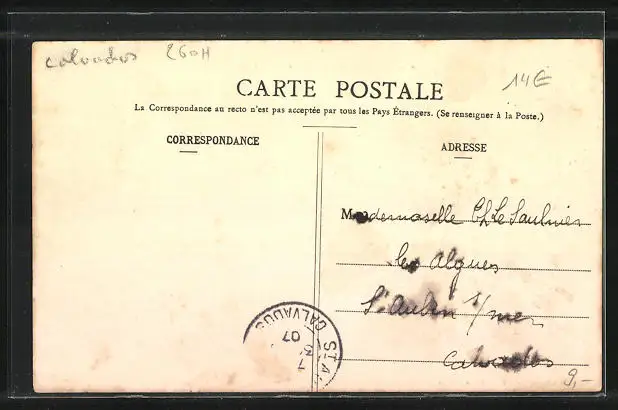 Calvados 260H
14€
CARTE POSTALE
La Correspondance au recto n'est pas acceptée par tous les Pays Étrangers. (Se renseigner à la Poste.)
CORRESPONDANCE
ADRESSE
Mademoiselle Ch Le Saulnier
les Algues
St Aubin s/mer
Calvados
ST-A
CALVADOS
07
9,-